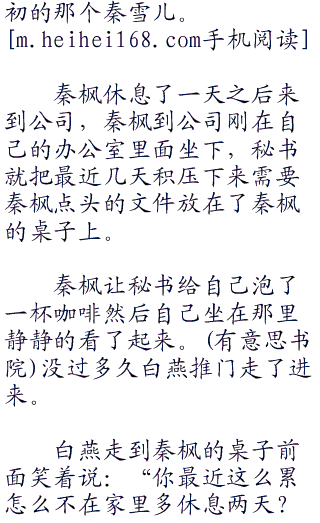 初的那个秦雪儿。
[m.heihei168.com手机阅读]
秦枫休息了一天之后来
到公司，秦枫到公司刚在自
己的办公室里面坐下，秘书
就把最近几天积压下来需要
秦枫点头的文件放在了秦枫
的桌子上。
秦枫让秘书给自己泡了
一杯咖啡然后自己坐在那里
静静的看了起来。(有意思书
院)没过多久白燕推门走了进
来。
白燕走到秦枫的桌子前
面笑着说：“你最近这么累
怎么不在家里多休息两天？